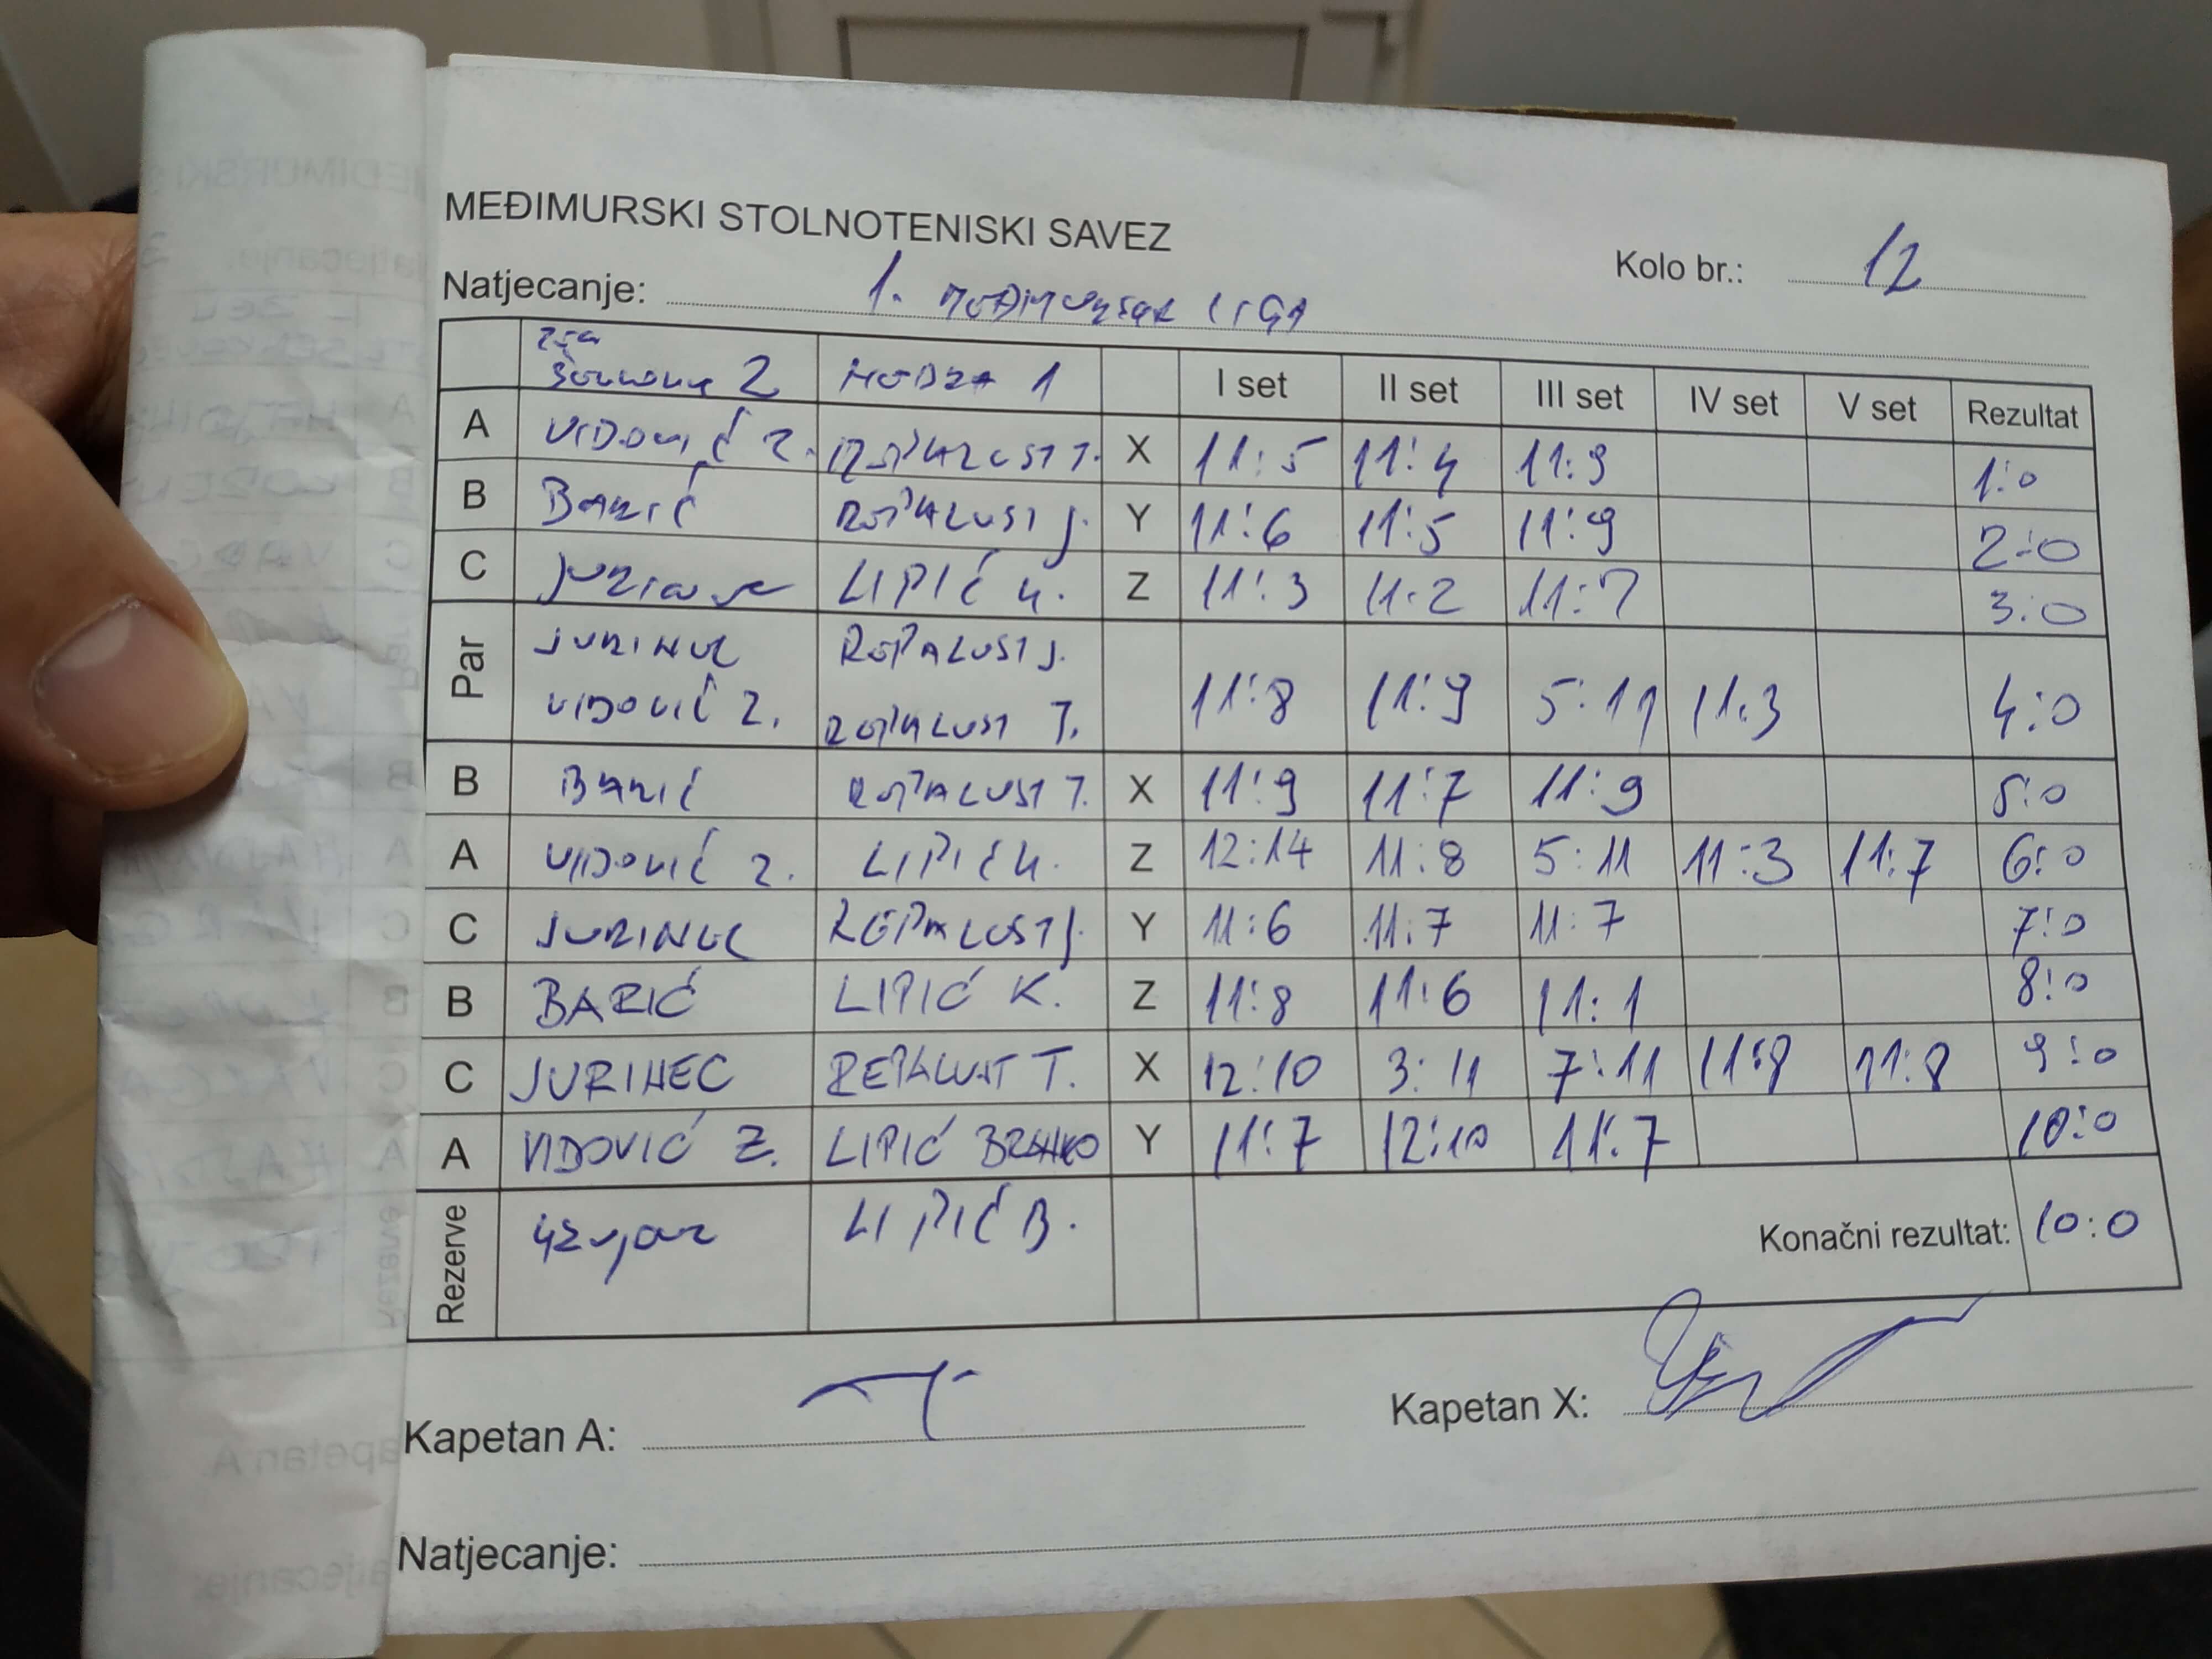 MEĐIMURSKI STOLNOTENISKI SAVEZ
Kolo br.: 12
Natjecanje: 1. MEĐIMURSKA LIGA
2 MODZA 1 I set II set III set IV set V set Rezultat
A VIDOVIĆ Z. REPALUST T. X 11:5 11:4 11:9 1:0
B BARIĆ REPALUST J. Y 11:6 11:5 11:9 2:0
C JURINEC LIPIĆ K. Z 11:3 11:2 11:7 3:0
Par JURINEC REPALUST J. 11:8 11:9 5:11 11:3 4:0
VIDOVIĆ Z. REPALUST T.
B BARIĆ REPALUST T. X 11:9 11:7 11:9 5:0
A VIDOVIĆ Z. LIPIĆ K. Z 12:14 11:8 5:11 11:3 11:7 6:0
C JURINEC REPALUST J. Y 11:6 11:7 11:7 7:0
B BARIĆ LIPIĆ K. Z 11:8 11:6 11:1 8:0
C JURINEC REPALUST T. X 12:10 3:11 7:11 11:8 11:8 9:0
A VIDOVIĆ Z. LIPIĆ BRANKO Y 11:7 12:10 11:7 10:0
Rezerve LIPIĆ B. Konačni rezultat: 10:0
Kapetan A: Kapetan X:
Natjecanje: